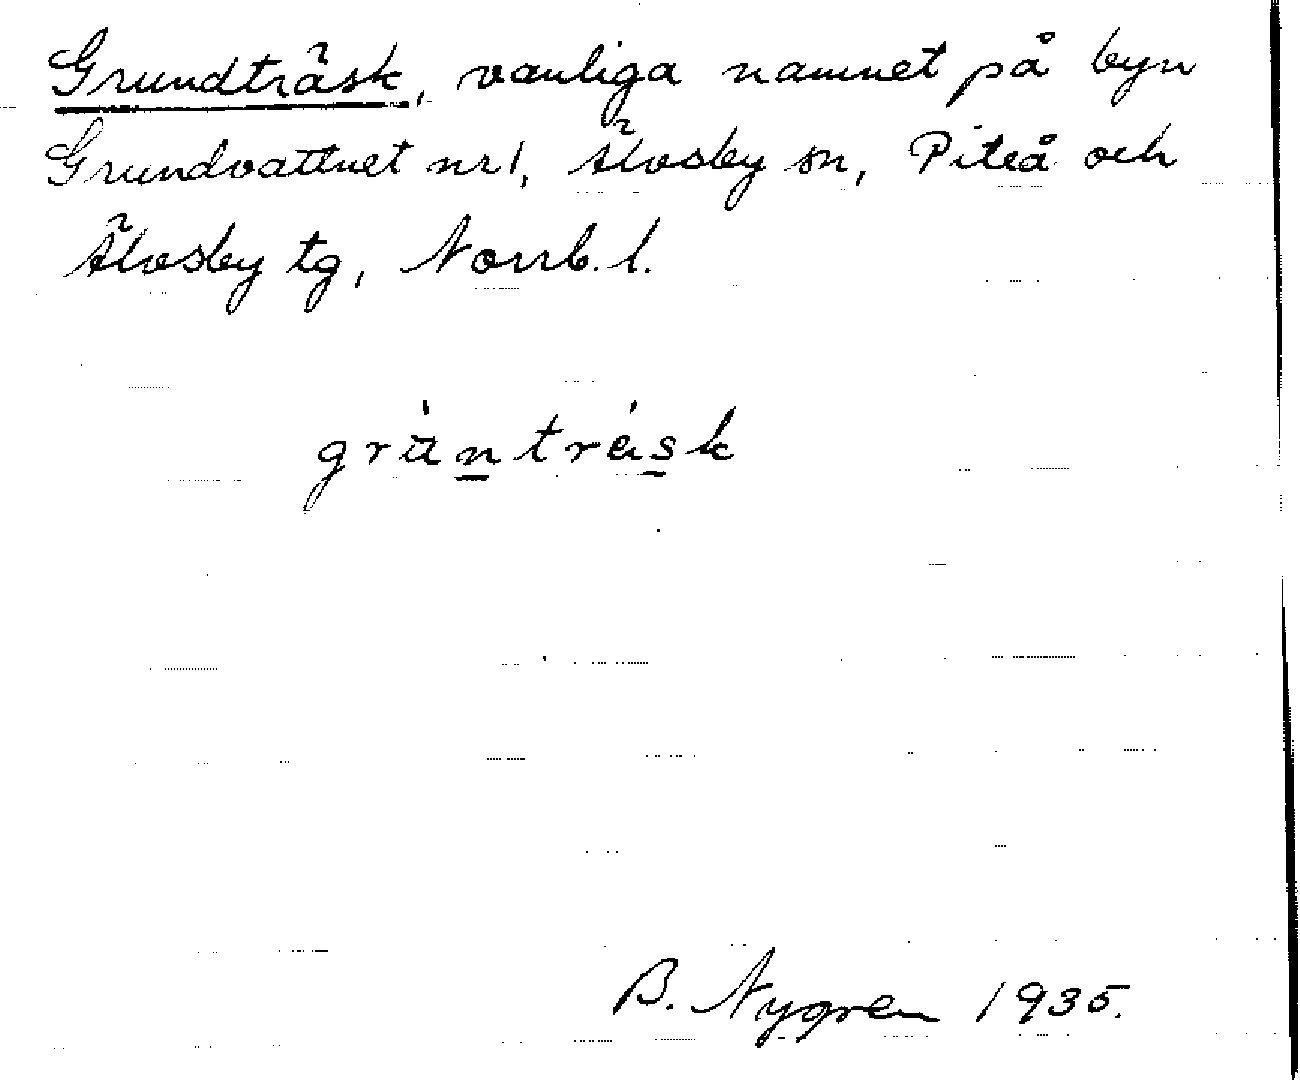 Grundträsk, vanliga namnet på byn
Grundvattnet nr 1, Älvsby sn, Piteå och
Älvsby tg, Norrb. l.
grùntrásk
B. Nygren 1935.